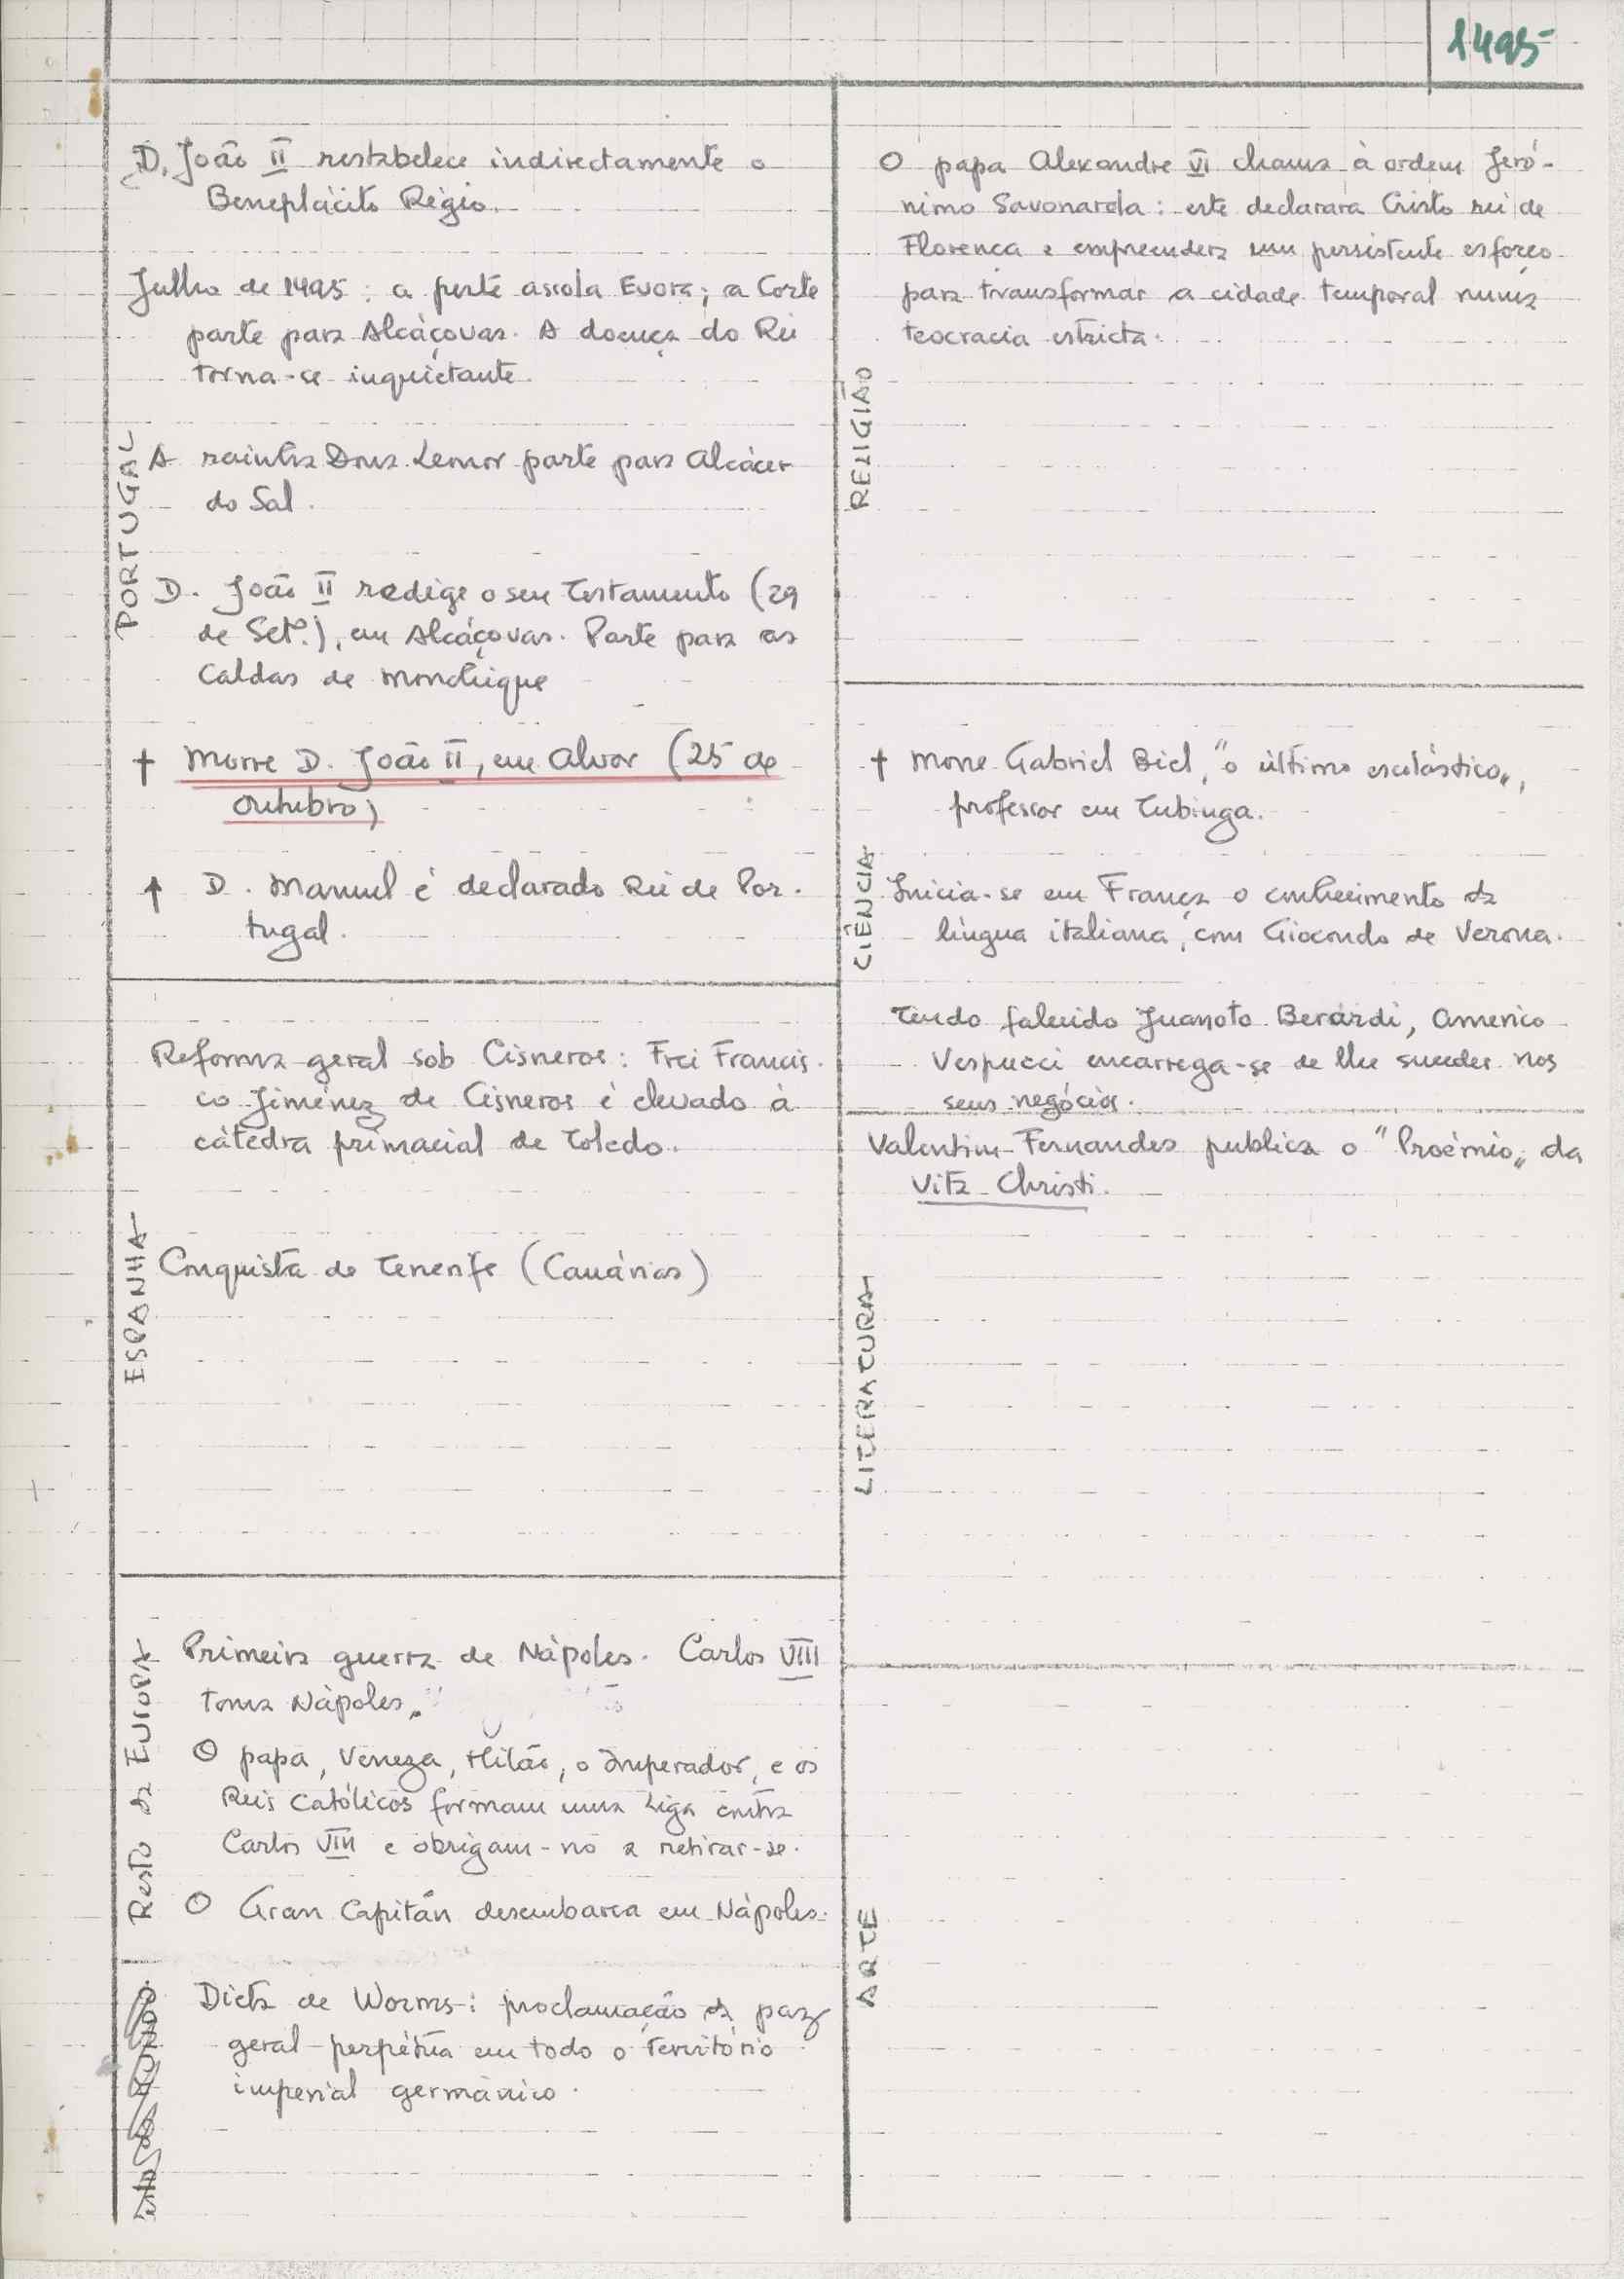 1495
PORTUGAL
D. João II restabelece indirectamente o
Beneplácito Régio.
Julho de 1495: a peste assola Evora; a Corte
parte para Alcáçovas. A doença do Rei
torna-se inquietante.
A rainha Dona Leonor parte para Alcácer
do Sal.
D. João II redige o seu Testamento (29
de Setº.), em Alcáçovas. Parte para as
Caldas de Monchique
† Morre D. João II, em Alvor (25 de
Outubro)
↑ D. Manuel é declarado Rei de Por-
tugal.
ESPANHA
Reforma geral sob Cisneros: Frei Francis-
co Jiménez de Cisneros é elevado à
cátedra primacial de Toledo.
Conquista de Tenerife (Canárias)
Resto da EUROPA
Primeira guerra de Nápoles. Carlos VIII
toma Nápoles.
O papa, Veneza, Milão, o Imperador, e os
Reis Católicos formam uma Liga contra
Carlos VIII e obrigam-no a retirar-se.
O Gran Capitán desembarca em Nápoles.
Dieta de Worms: proclamação da paz
geral perpétua em todo o território
imperial germânico.
RELIGIÃO
O papa Alexandre VI chama à ordem Jeró-
nimo Savonarola: este declarara Cristo rei de
Florença e empreendera um persistente esforço
para transformar a cidade temporal numa
teocracia estricta.
CIÊNCIA
† Morre Gabriel Biel, "o último escolástico",
professor em Tubinga.
Inicia-se em França o conhecimento da
língua italiana, com Giocondo de Verona.
Tendo falecido Juanoto Berardi, Americo
Vespucci encarrega-se de lhe suceder nos
seus negócios.
LITERATURA
Valentim Fernandes publica o "Proémio" da
Vita Christi.
ARTE